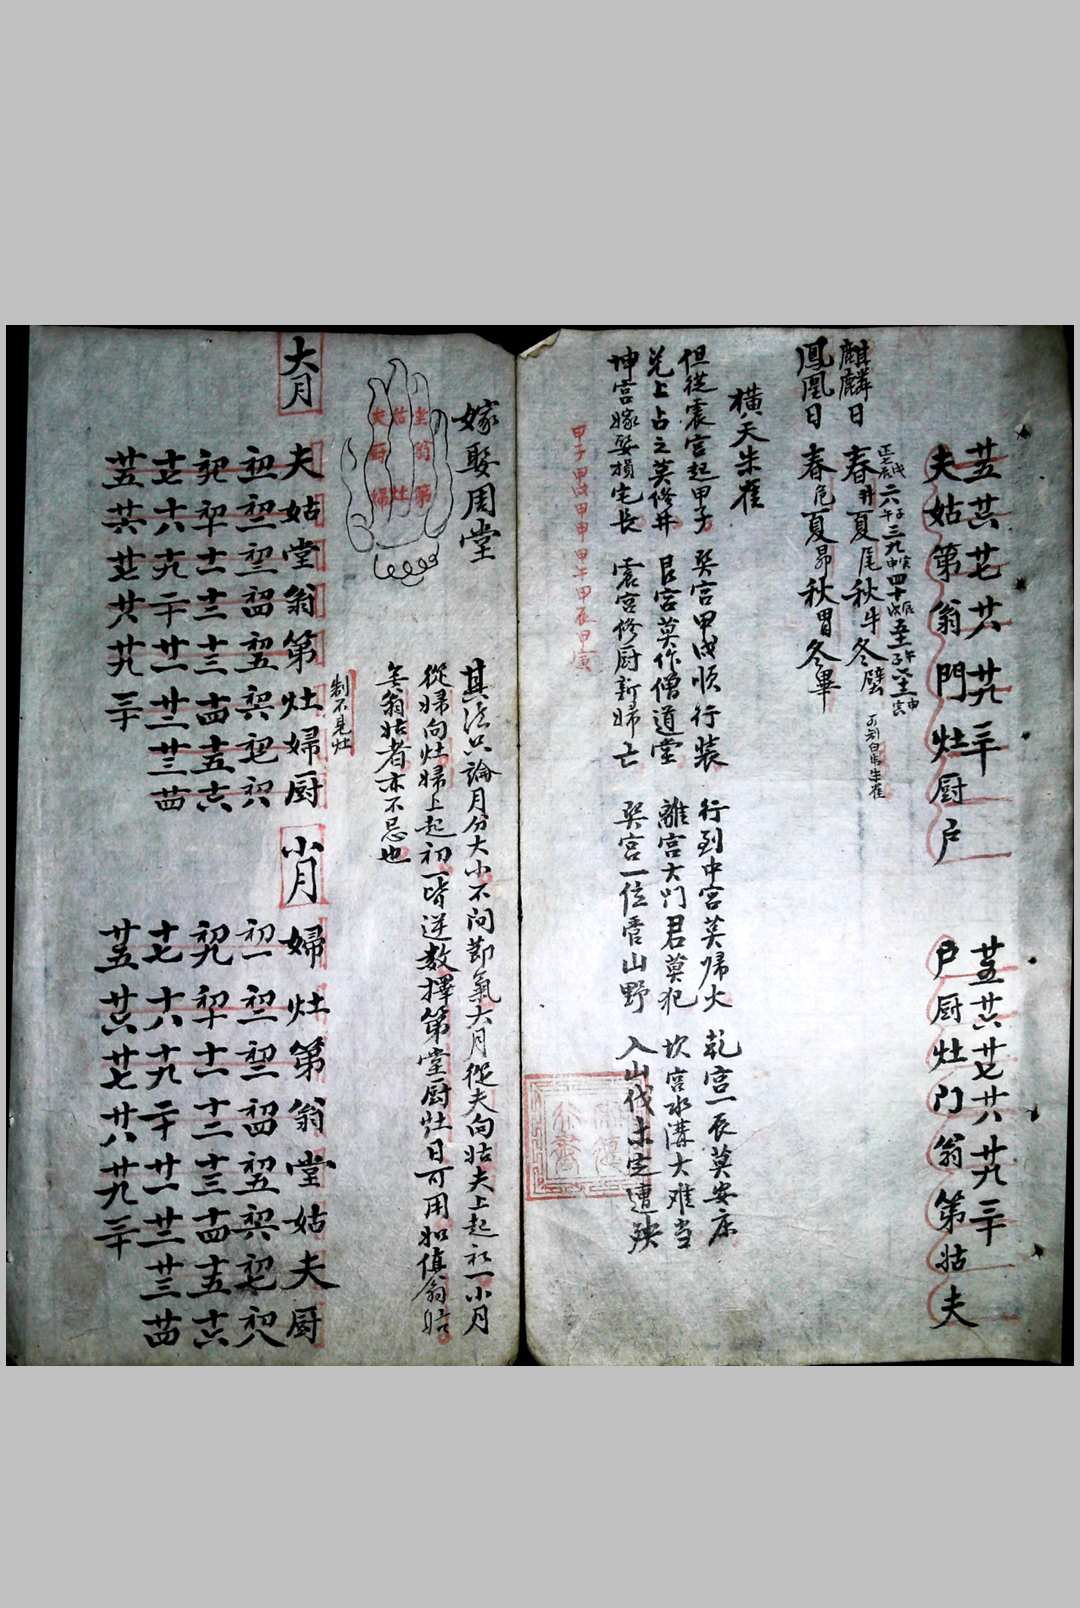 廿五 廿六 廿七 廿八 廿九 三十
夫 姑 第 翁 門 灶 厨 户
廿五 廿六 廿七 廿八 廿九 三十
户 厨 灶 门 翁 第 姑 夫
麒麟日 春井 夏尾 秋牛 冬壁
鳳凰日 春危 夏昴 秋胃 冬畢
橫天朱雀
但從震宫起甲子 巽宫甲戌順行裝 行到中宫莫归火 乾宫一辰莫安床
兑上占之莫修井 艮宫莫作僧道堂 離宫大门君莫犯 坎宫水溝大难当
坤宫嫁娶損宅长 震宫修厨新婦亡 巽宫一位管山野 入山伐木定遭殃
甲子 甲戌 甲申 甲午 甲辰 甲寅
嫁娶周堂
堂 翁 第
姑 灶
夫 厨 婦
其法只論月分大小不问節氣大月從夫向姑夫上起初一小月
從婦向灶婦上起初一皆逆数擇第堂厨灶日可用如值翁姑
無翁姑者亦不忌也
制不見灶
大月
夫 姑 堂 翁 第 灶 婦 厨
初一 初二 初三 初四 初五 初六 初七 初八
初九 初十 十一 十二 十三 十四 十五 十六
十七 十八 十九 二十 廿一 廿二 廿三 廿四
廿五 廿六 廿七 廿八 廿九 三十
小月
婦 灶 第 翁 堂 姑 夫 厨
初一 初二 初三 初四 初五 初六 初七 初八
初九 初十 十一 十二 十三 十四 十五 十六
十七 十八 十九 二十 廿一 廿二 廿三 廿四
廿五 廿六 廿七 廿八 廿九 三十